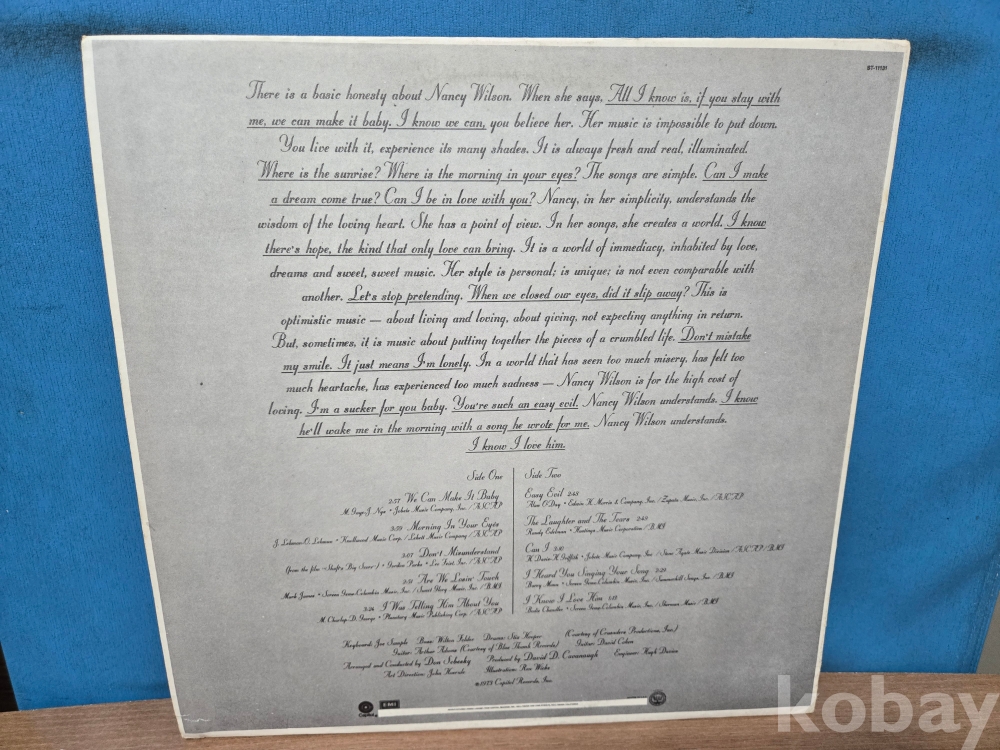 ST-11131
There is a basic honesty about Nancy Wilson. When she says, All I know is, if you stay with
me, we can make it baby. I know we can, you believe her. Her music is impossible to put down.
You live with it, experience its many shades. It is always fresh and real, illuminated.
Where is the sunrise? Where is the morning in your eyes? The songs are simple. Can I make
a dream come true? Can I be in love with you? Nancy, in her simplicity, understands the
wisdom of the loving heart. She has a point of view. In her songs, she creates a world. I know
there's hope, the kind that only love can bring. It is a world of immediacy, inhabited by love,
dreams and sweet, sweet music. Her style is personal; is unique; is not even comparable with
another. Let's stop pretending. When we closed our eyes, did it slip away? This is
optimistic music — about living and loving, about giving, not expecting anything in return.
But, sometimes, it is music about putting together the pieces of a crumbled life. Don't mistake
my smile. It just means I'm lonely. In a world that has seen too much misery, has felt too
much heartache, has experienced too much sadness — Nancy Wilson is for the high cost of
loving. I'm a sucker for you baby. You're such an easy evil. Nancy Wilson understands. I know
he'll wake me in the morning with a song he wrote for me. Nancy Wilson understands.
I know I love him.
Side One
2:57 We Can Make It Baby
M. Gaye-J. Nyx • Jobete Music Company, Inc. / ASCAP
3:59 Morning In Your Eyes
3:07 Don't Misunderstand
(from the film "Shaft's Big Score") • Gordon Parks •
2:31 Are We Losin' Touch
Mark James • Screen Gems-Columbia Music, Inc. / Sweet Glory Music, Inc. / BMI
3:26 I Was Telling Him About You
M. Charlap-D. George •
Side Two
Easy Evil 2:48
Alan O'Day • Edwin H. Morris & Company, Inc. / Zapata Music, Inc. / ASCAP
The Laughter and The Tears 2:49
Randy Edelman • Hastings Music Corporation / BMI
Can I
I Heard You Singing Your Song
Barry Mann • Screen Gems-Columbia Music, Inc. / Summerhill Songs, Inc. / BMI
I Know I Love Him
Keyboard: Joe Sample Bass: Wilton Felder Drums: Stix Hooper (Courtesy of Crusaders Productions, Inc.)
Guitar: Arthur Adams (Courtesy of Blue Thumb Records) Guitar: David Cohen
Arranged and Conducted by Don Sebesky Produced by David D. Cavanaugh Engineer: Hugh Davies
Art Direction: John Hoernle Illustration:
©1973 Capitol Records, Inc.
Capitol
kobay